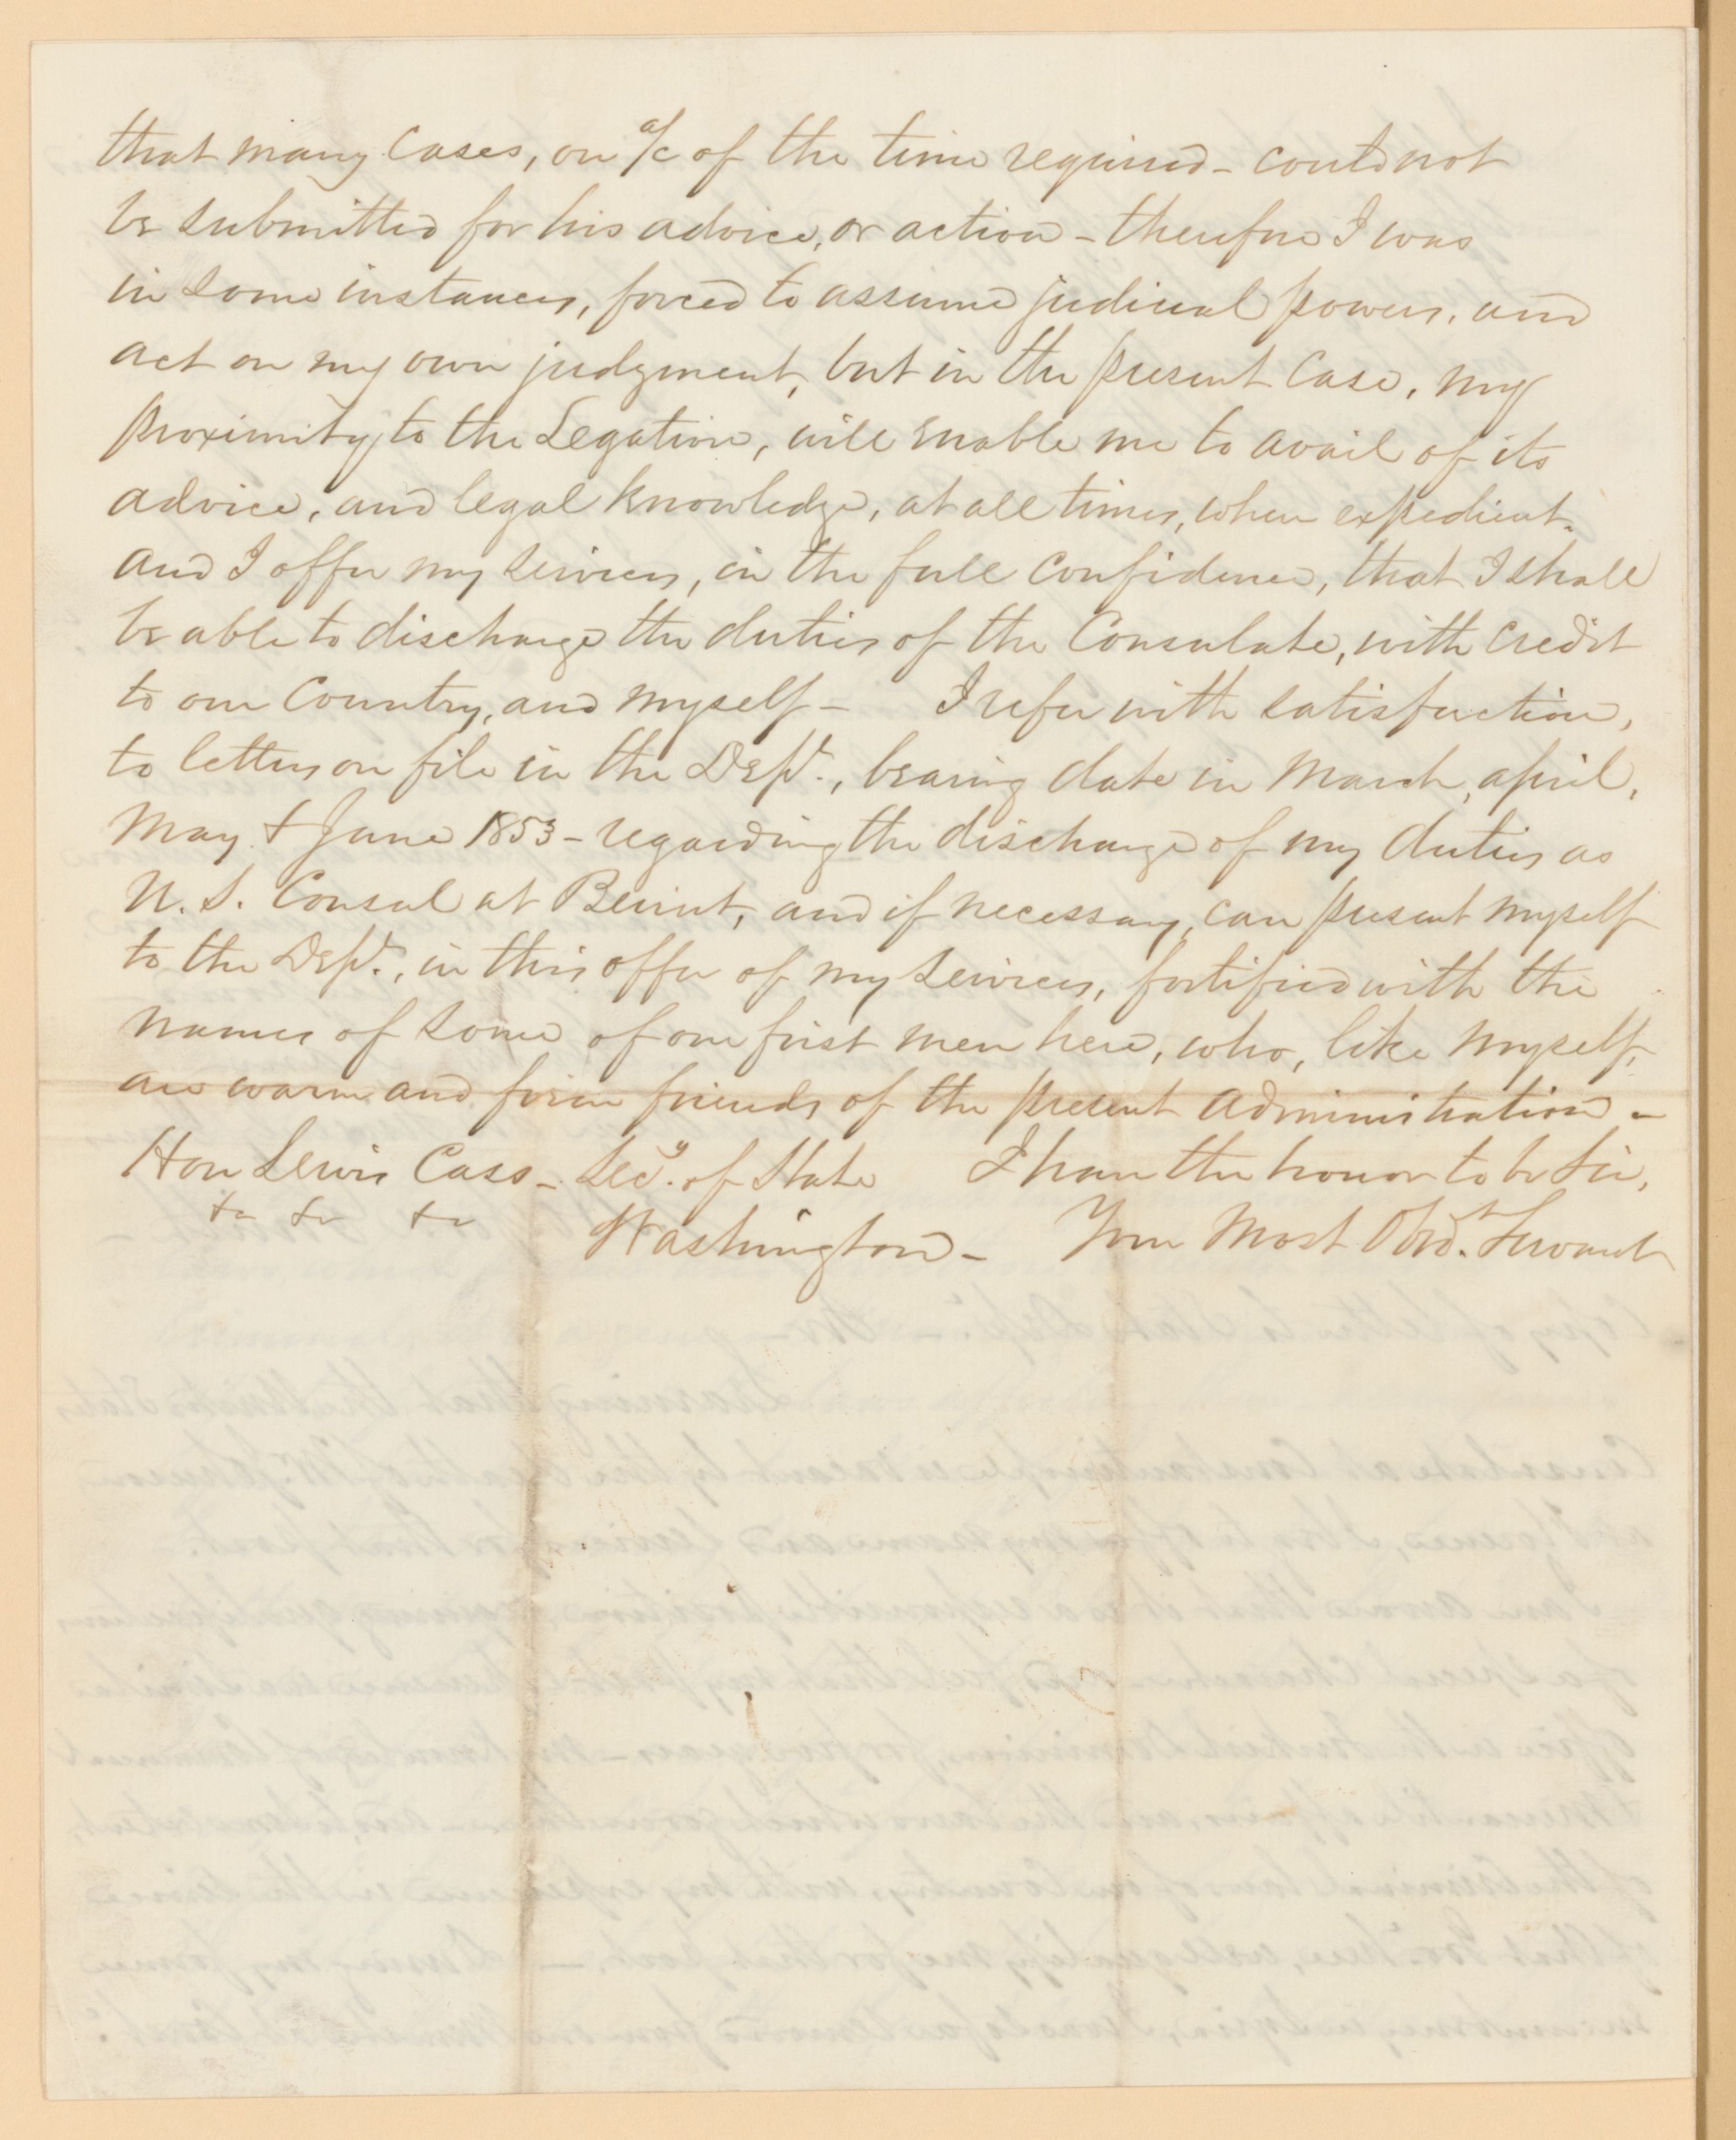 that many Cases, on a/c of the time required - could not
be submitted for his advice, or action - therefore I was
in some instances, forced to assume judicial powers, and
act on my own judgment, but in the present Case, my
proximity to the Legation, will enable me to avail of its
advice, and legal knowledge, at all times, when expedient.
and I offer my services, in the full confidence, that I shall
be able to discharge the duties of the Consulate, with credit
to our Country, and myself - I refer with satisfaction,
to letters on file in the Dept., bearing date in March, april,
May & June 1853 - regarding the discharge of my duties as
U.S. Consul at Beirut, and if necessary, can present myself
to the Dept., in this offer of my services, fortified with the
names of some of our first men here, who, like myself,
are warm and firm friends of the present administration -
Hon Lewis Cass - Secy. of State I have the honor to be Sir,
&c &c &c Washington - Your Most Obdt. Servant